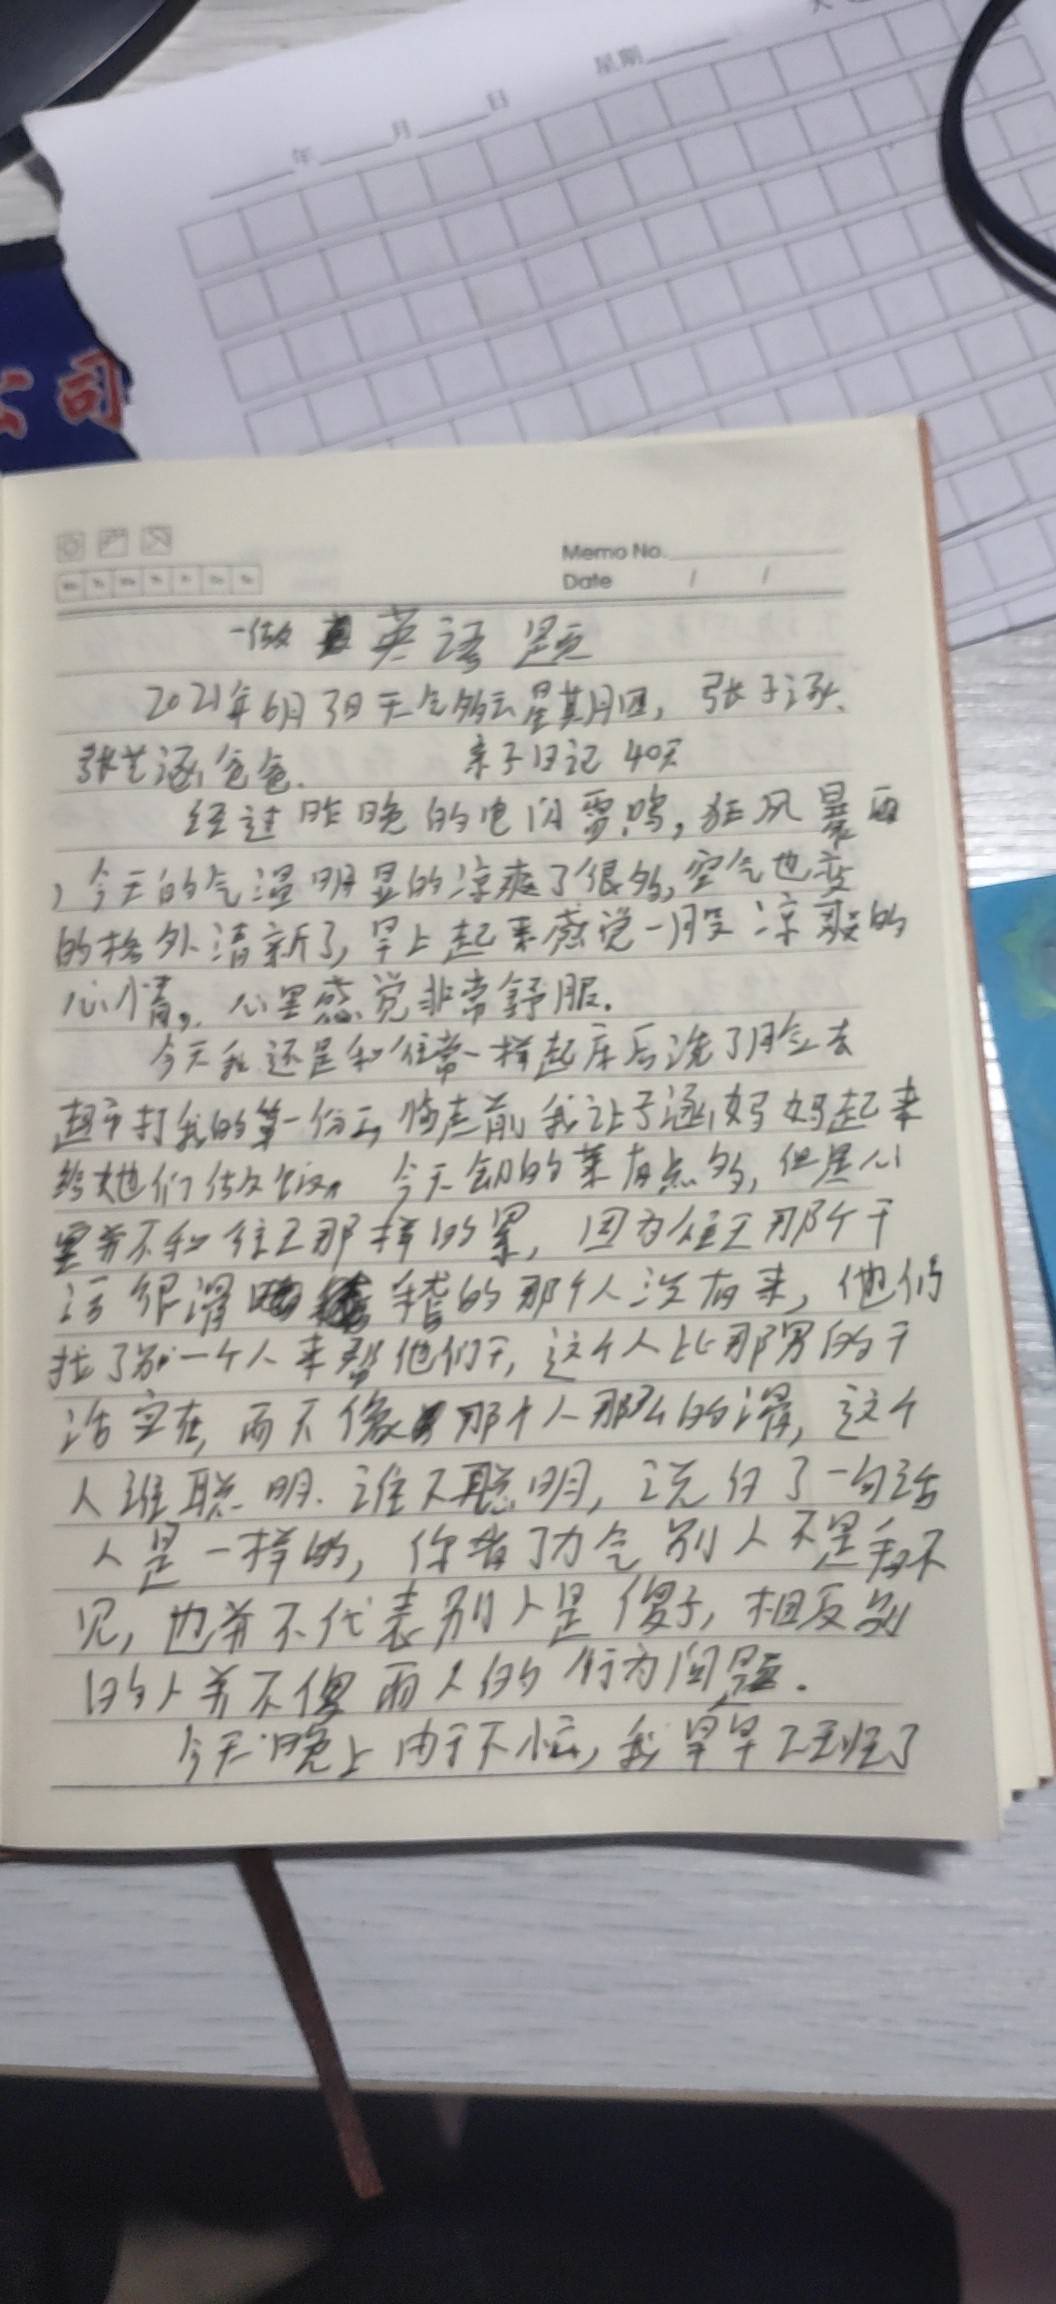 年 月 日 星期
公司
Memo No.
Date / /
一做英语题
2021年6月3日天气多云星期四, 张子涵、
张艺涵爸爸. 亲子日记 40天
经过昨晚的电闪雷鸣, 狂风暴雨
, 今天的气温明显的凉爽了很多, 空气也变
的格外清新了, 早上起来感觉一股凉爽的
心情。 心里感觉非常舒服.
今天我还是和往常一样起床后洗了脸去
超市打我的第一份工, 临走前, 我让子涵妈妈起来
给她们做饭。 今天卸的菜有点多, 但是心
里并不和往天那样的累, 因为往天那个干
活很滑稽的那个人没有来, 他们
找了别一个人来帮他们干, 这个人比那男的干
活实在, 而不像那个人那么的滑, 这个
人谁聪明. 谁不聪明, 说白了一句话
人是一样的, 你省了力气 别人不是看不
见, 也并不代表别人是傻子, 相反别
的人并不傻 而人的行为问题.
今天晚上由于不忙, 我早早了